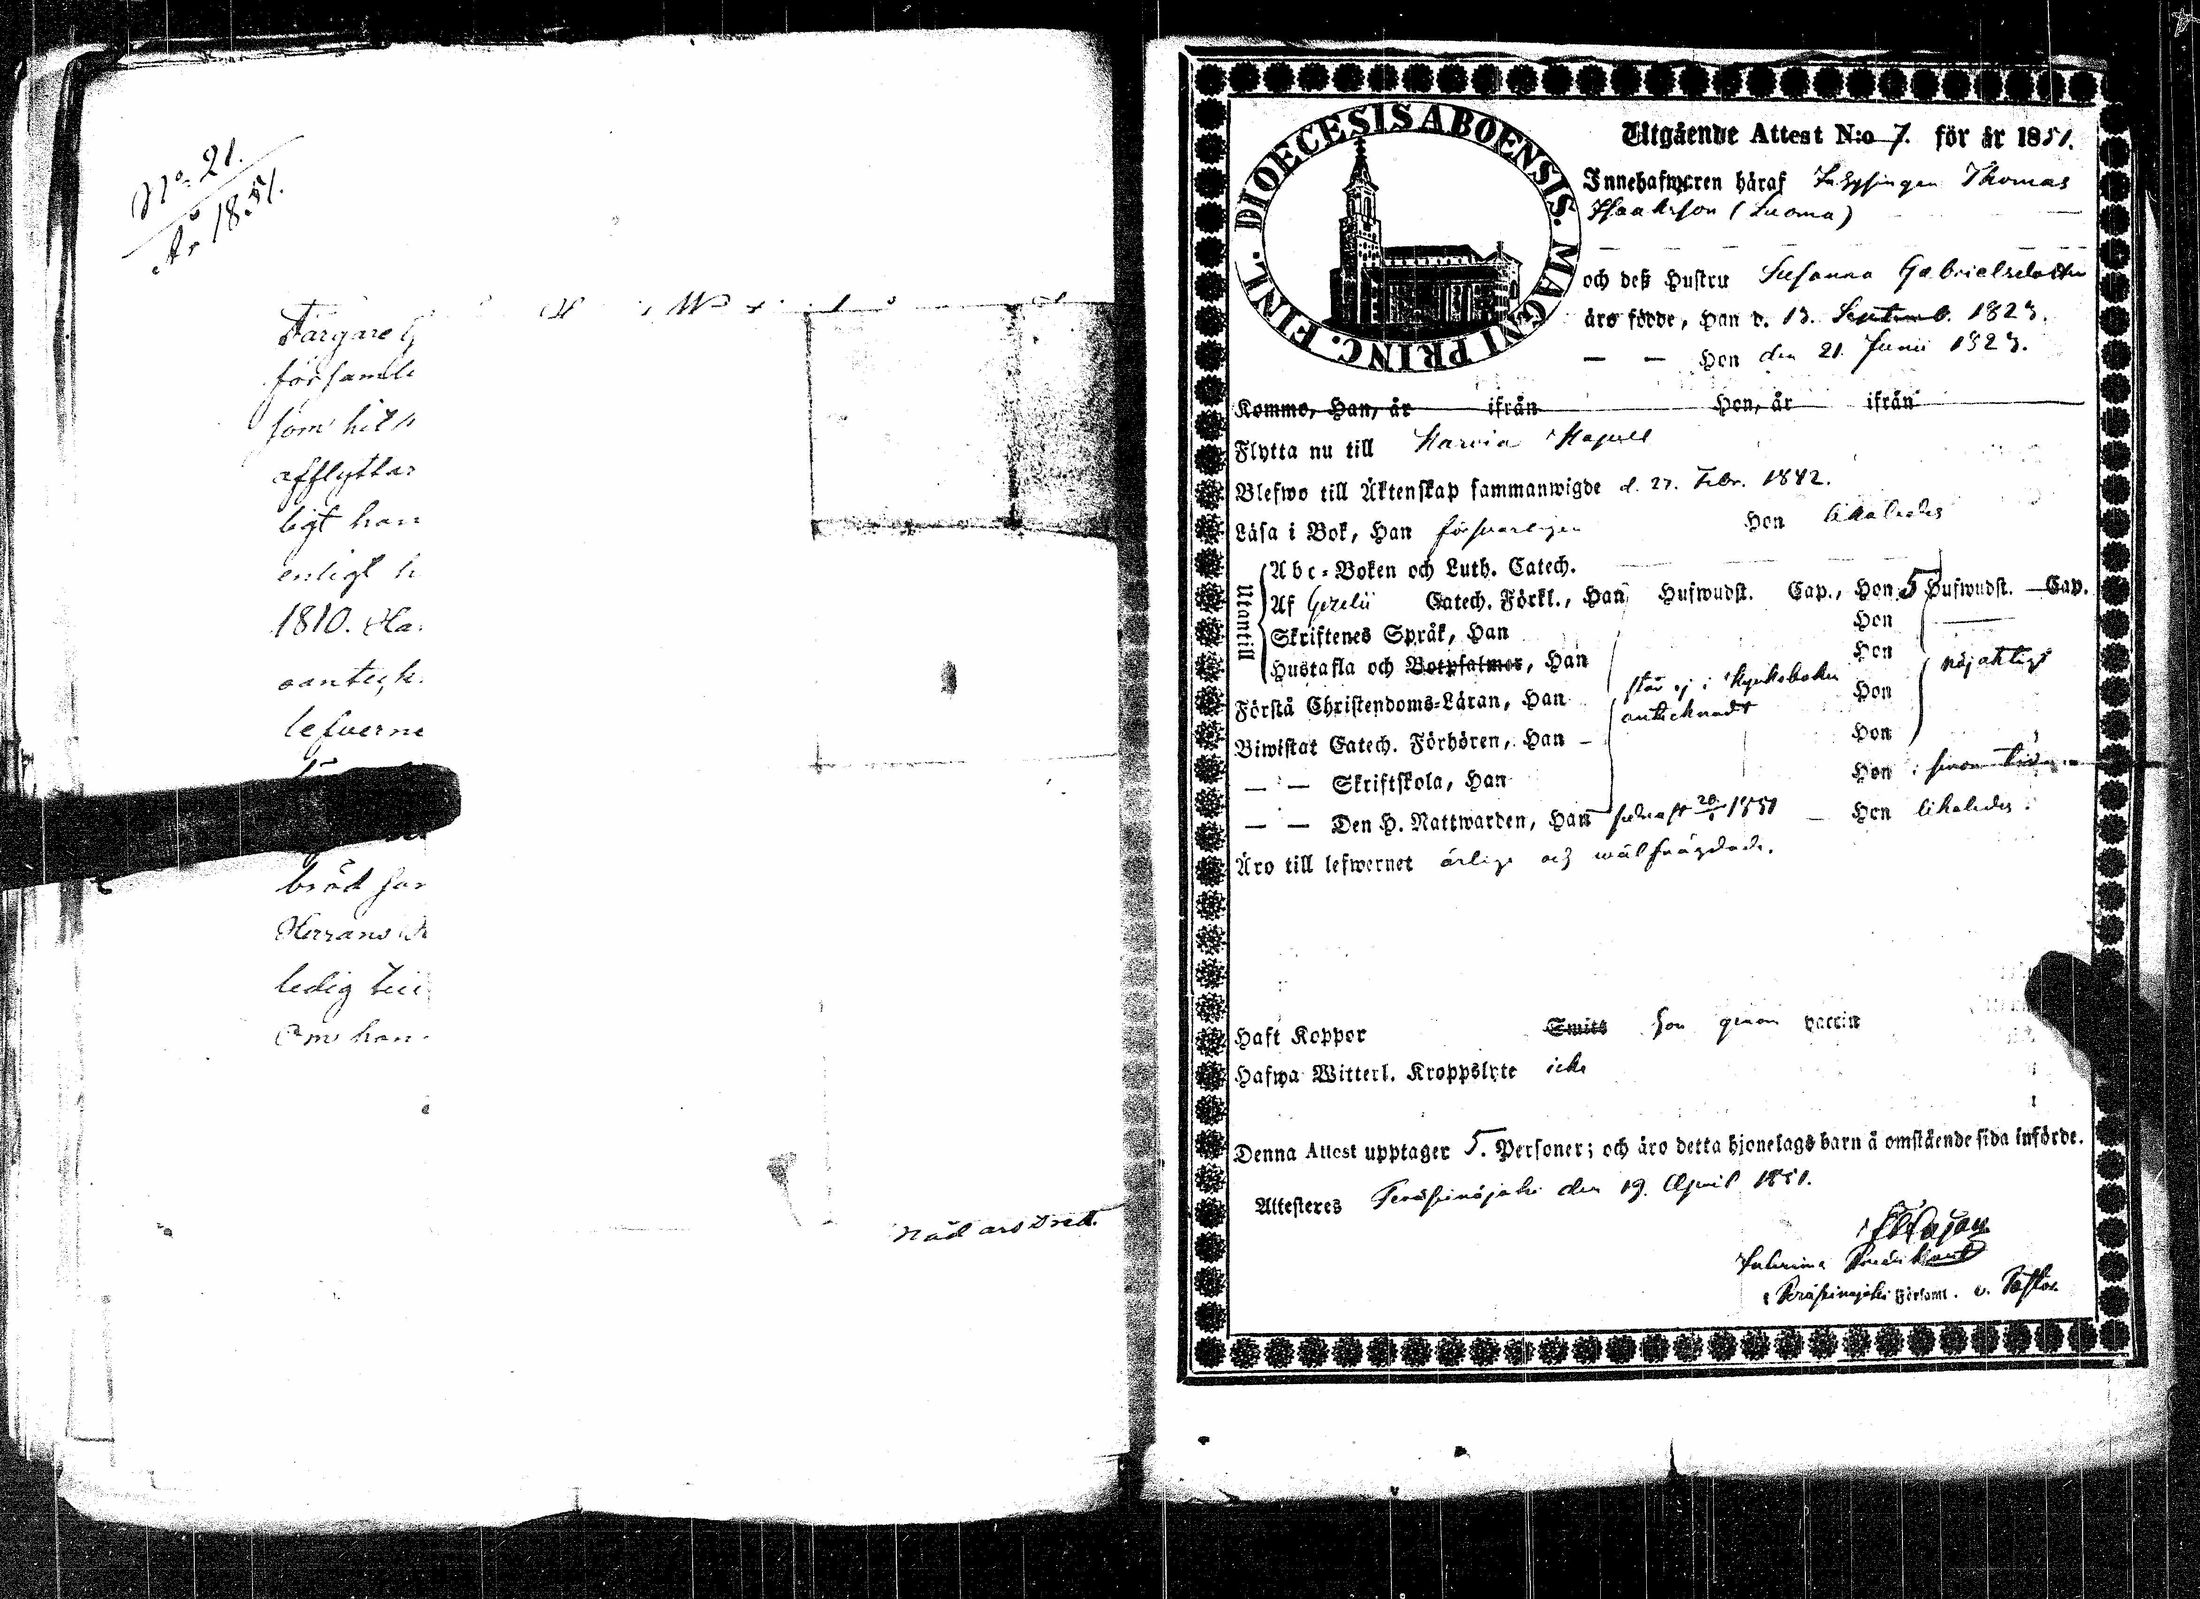 No 21.
År 1851.
Färgare G
församli
som hit
afflyttar
ligt han
enligt h
1810. Ha
anteck
lefverne
bröd
Herrans
ledig till
Om han
DIOECESIS ABOENSIS. MAGNI PRINC. FINL.
Utgående Attest N:o 7. för år 1851.
Innehafwaren häraf Inhysingen Thomas
Isaaksson (Luoma)
och deß Hustru Susanna Gabrielsdotter
äro födde, Han d. 13. Septemb. 1823.
— — Hon den 21. Junii 1823.
Kommo, Han, år ifrån Hon, år ifrån
Flytta nu till Karvia Kapell
Blefwo till Äktenskap sammanwigde d. 27. Febr. 1842.
Läsa i Bok, Han försvarligen Hon likaledes
Utantill
Abc-Boken och Luth. Catech.
Af Gezelii Catech. Förkl., Han Hufwudst. Cap., Hon 5 Hufwudst. Cap.
Skriftenes Språk, Han Hon
Hustafla och Botpsalmer, Han Hon
Förstå Christendoms-Läran, Han står ej i Kyrkoboken antecknadt Hon nöjaktigt
Biwistat Catech. Förhören, Han Hon
— — Skriftskola, Han Hon i sinom tid
— — Den H. Nattwarden, Han sednast 1851 Hon likaledes.
Äro till lefwernet ärlige och wälfrägdade.
Haft Koppor Smitt Hon genom vaccin
Hafwa Witterl. Kroppslyte icke
Denna Attest upptager 5. Personer; och äro detta hjonelags barn å omstående sida införde.
Attesteres Peräseinäjoki den 19. April 1851.
Peräseinäjoki Församl. v. Pastor